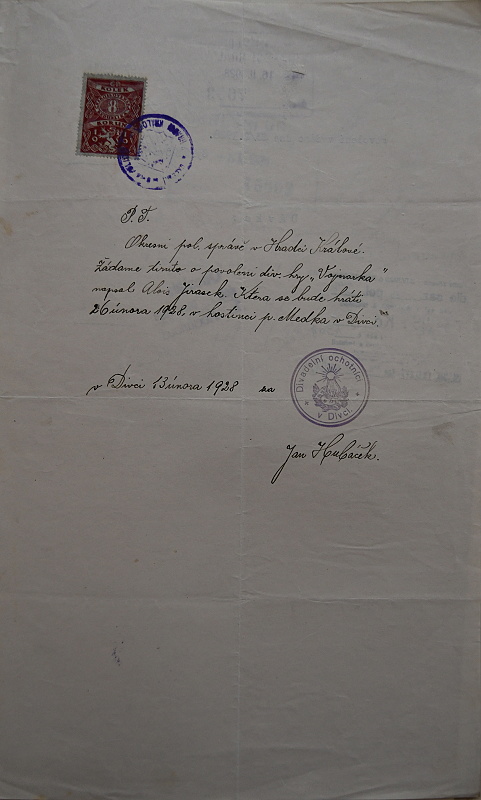 KOLEK
8
KORUN
P. T.
Okresní pol. správě v Hradci Králové.
Žádáme tímto o povolení div. hry „Vojnarka"
napsal Alois Jirasek. Která se bude hráti
26 února 1928, v hostinci p. Medka v Divci
v Divci 13 února 1928 za
Divadelní ochotníci
v Divci.
Jan Hubáček.